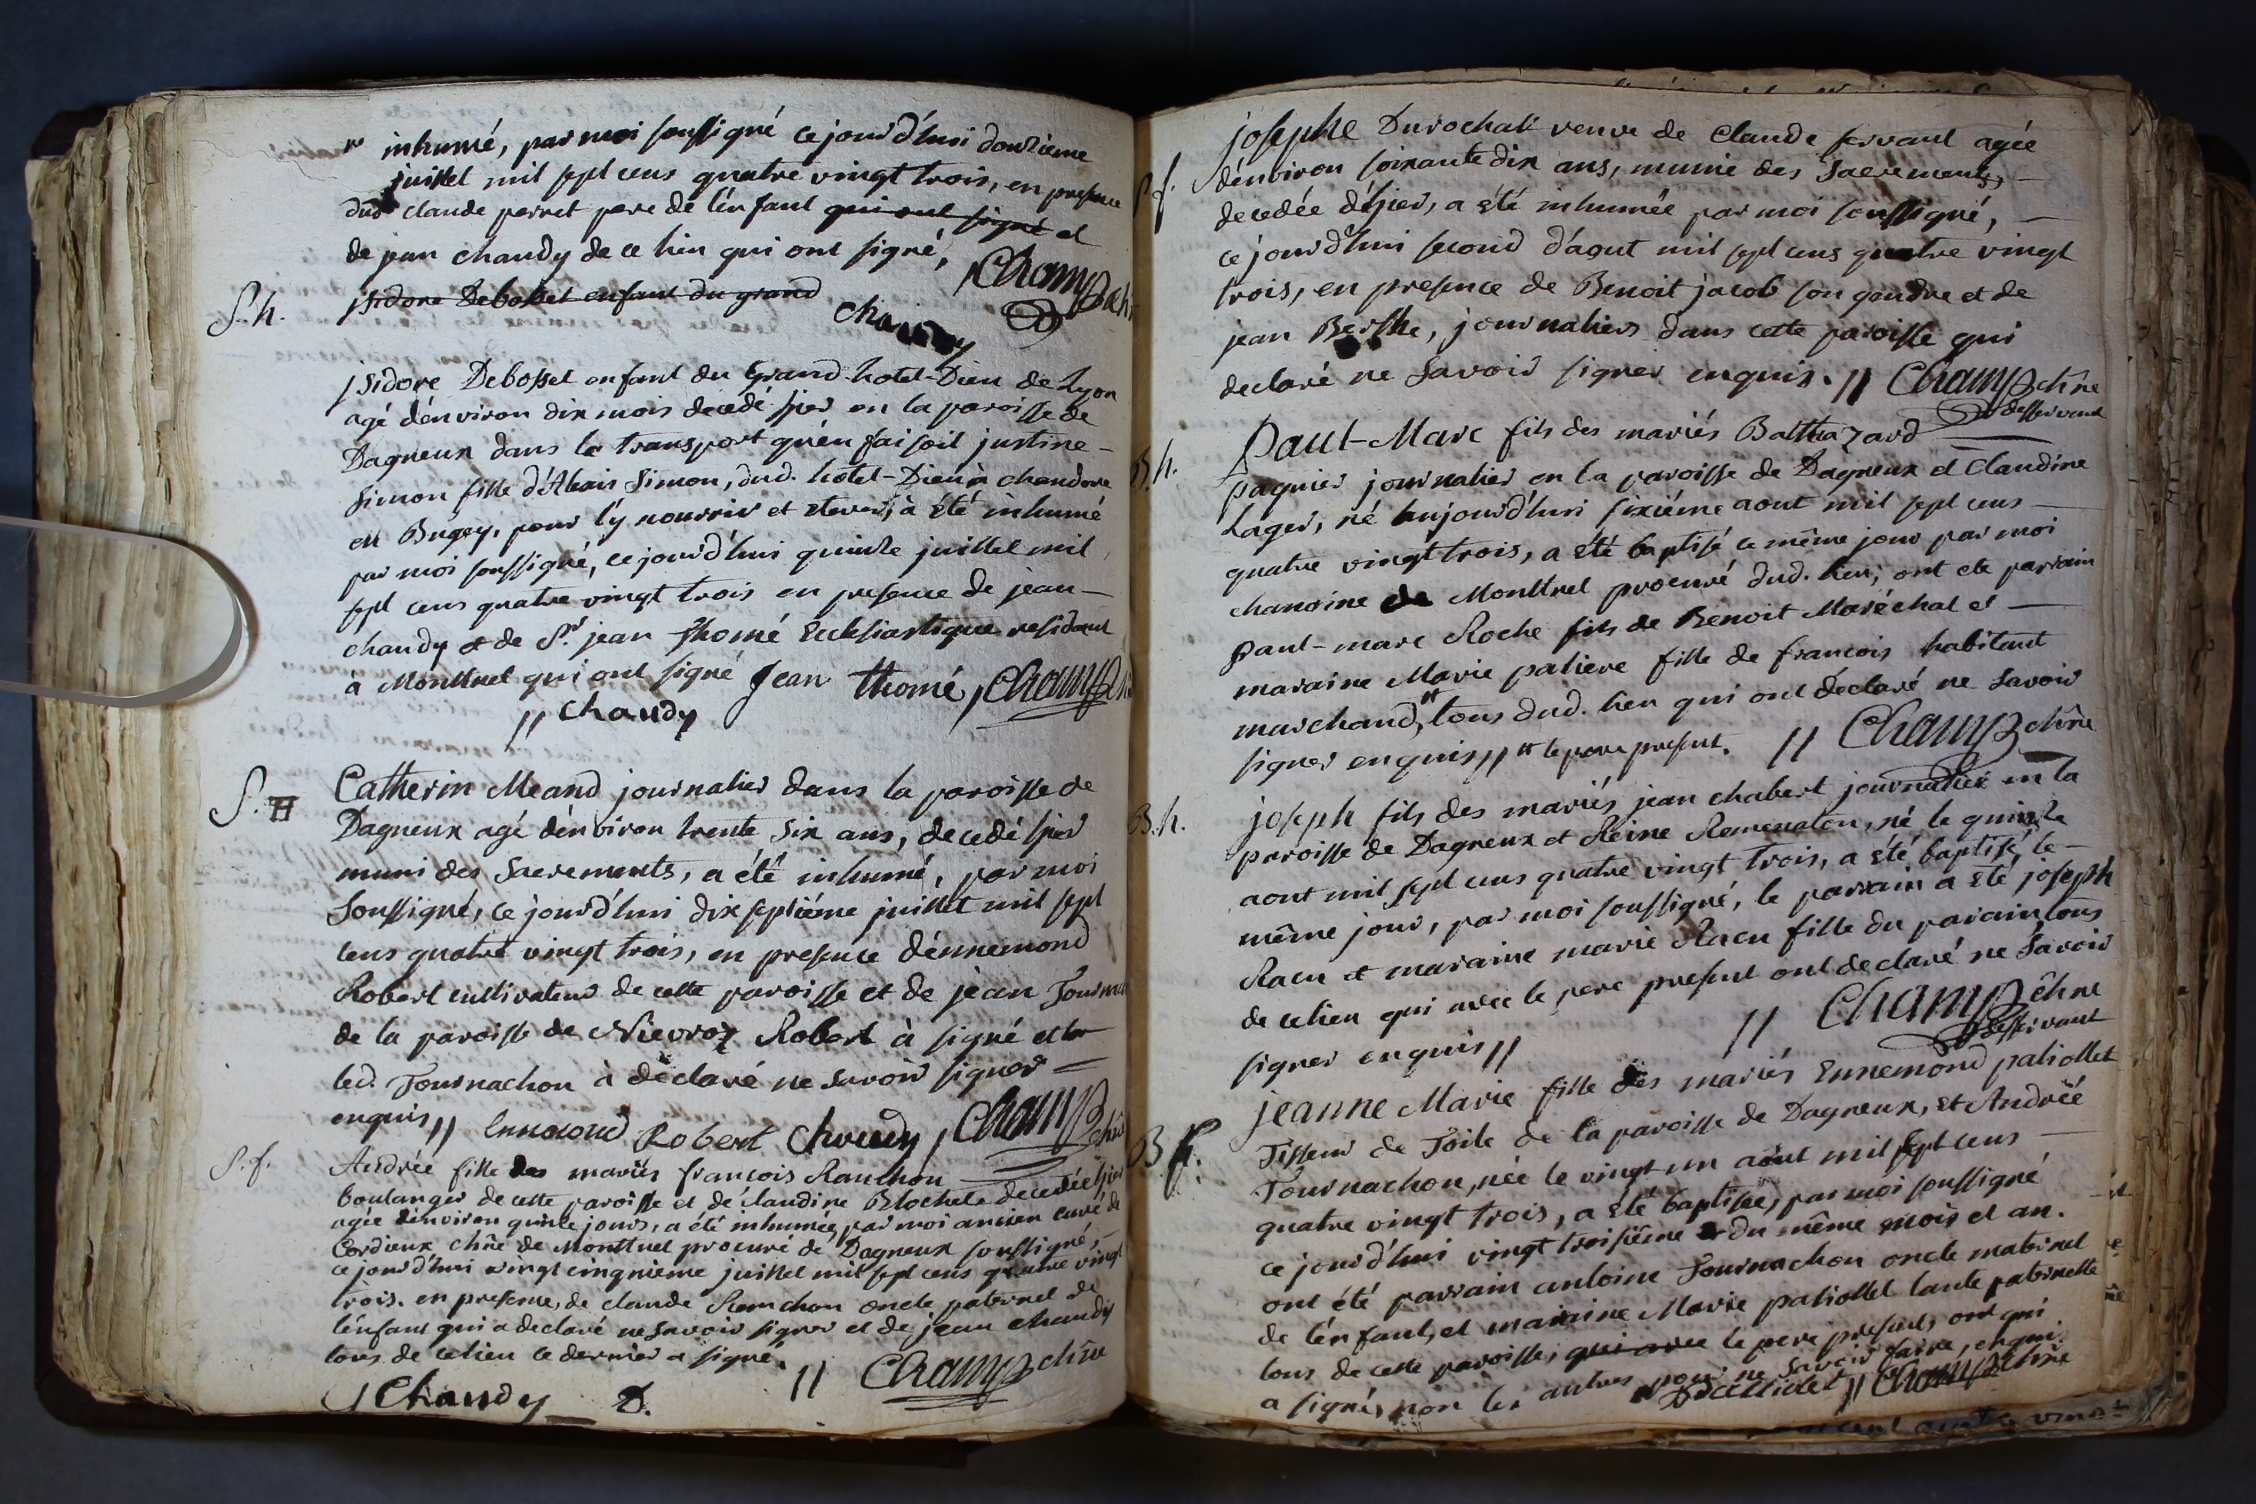 inhumé, par moi soussigné ce jourd'hui douzieme
juillet mil sept cens quatre vingt trois, en presence
dud claude perret pere de l'enfant qui ont signé et
de jean chaudy de ce lieu qui ont signé,
Champ chne
S. h. jsidore Debosset enfant du grand
chaudy
jsidore Debosset enfant du Grand hotel-Dieu de Lyon
agé d'environ dix mois decedé hier en la paroisse de
Dagneux dans le transport qu'en faisoit justine
Simon fille d'Alexis Simon, dud. hôtel-Dieu à chandore
en Bugey, pour l'y nourrir et elever, à été inhumé
par moi soussigné, ce jourd'hui quinze juillet mil
sept cens quatre vingt trois en presence de jean
chaudy et de Sr. jean thomé Ecclesiastique residant
à Montluel qui ont signé Jean thomé, Champ
// chaudy
S. H Catherin Meand journalier dans la paroisse de
Dagneux agé d'environ trente six ans, decedé hier
muni des Sacrements, a été inhumé, par moi
Soussigné, ce jourd'hui dix septiéme juillet mil sept
cens quatre vingt trois, en presence d'ennemond
Robert cultivateur de cette paroisse et de jean Tourna
de la paroisse de Nievroz Robert à signé et le
led. Tournachon à déclaré ne savoir signer
enquis // Ennemond Robert Chaudy, Champ chne
S. f. Andréé fille des mariés francois Ranchon
boulanger de cette paroisse et de claudine Blochet decedée hier
agée d'environ quinze jours, a été inhumée, par moi ancien curé de
Cordieux chne de Montluel procuré de Dagneux soussigné,
ce jourd'hui vingt cinquieme juillet mil sept cens quatre vingt
trois. en presence, de claude Ranchon oncle paternel de
l'enfant qui a declaré ne savoir signer et de jean chaudy
tous de ce lieu le dernier a signé.
// Champ chne
Chaudy D.
S. f. josephe Durochat veuve de Claude servant agée
d'environ soixante dix ans, munie des Sacrements,
decedée d'hier, a été inhumée par moi soussigné,
ce jourd'hui second d'aout mil sept cens quatre vingt
trois, en presence de Benoit jacob son gendre et de
jean Berthe, journaliers dans cette paroisse qui
declaré ne Savoir signer enquis. // Champ chne
desservant
B. h. Paul-Marc fils des mariés Balthazard
paquier journalier en la paroisse de Dagneux et Claudine
Lager, né aujourd'hui sixiéme aout mil sept cens
quatre vingt trois, a été baptisé ce même jour par moi
chanoine de Montluel procuré dud. lieu, ont été parrain
paul-marc Roche fils de Benoit Maréchal et
maraine Marie paliere fille de francois habitant
marchand, tous dud. lieu qui ont déclaré ne Savoir
signer enquis // le pere present. // Champ chne
B. h. joseph fils des mariés jean chabert journalier en la
paroisse de Dagneux et Reine Remenaton, né le quinze
aout mil sept cens quatre vingt trois, a été baptisé, le
même jour, par moi soussigné, le parrain a été joseph
Racu et maraine marie Racu fille du parain tous
de ce lieu qui avec le pere present ont declaré ne Savoir
signer enquis // // Champ chne
desservant
B. f. jeanne Marie fille des mariés Ennemond paliollet
Tisseur de Toile de la paroisse de Dagneux, et Andréé
Tournachon, née le vingt un aout mil sept cens
quatre vingt trois, a été baptisée, par moi soussigné
ce jourd'hui vingt troisiéme du même mois et an.
ont été parrain antoine Tournachon oncle maternel
de l'enfant, et maraine Marie paliollet tante paternelle
tous de cette paroisse, qui avec le pere present, ont qui
a signé, non les autres pour ne Savoir faire, enquis.
Palliolet // Champ chne